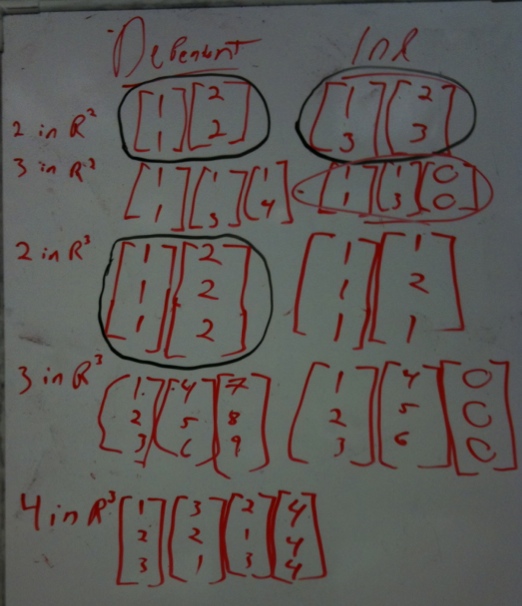 Dependent Ind
2 in R² [1 1] [2 2] [1 3] [2 3]
3 in R² [1 1] [1 3] [1 4] [1 1] [1 3] [0 0]
2 in R³ [1 1 1] [2 2 2] [1 1 1] [1 2 1]
3 in R³ [1 2 3] [4 5 6] [7 8 9] [1 2 3] [4 5 6] [0 0 0]
4 in R³ [1 2 3] [3 2 1] [2 1 3] [4 4 4]